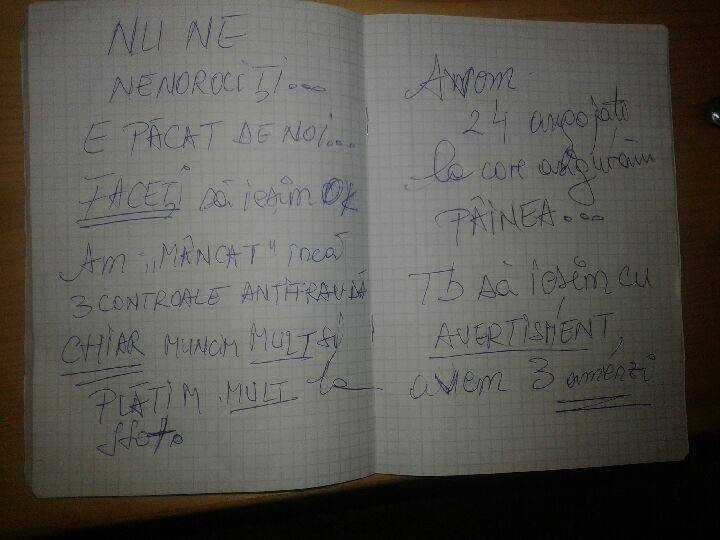 NU NE
NENOROCIȚI...
E PĂCAT DE NOI...
FACEȚI să ieșim OK
Am „MÂNCAT" încă
3 CONTROALE ANTIFRAUDĂ
CHIAR MUNCIM MULT și
PLĂTIM MULT la
stat.
Avem
24 angajați
la care asigurăm
PÂINEA...
Tb să ieșim cu
AVERTISMENT,
avem 3 amenzi